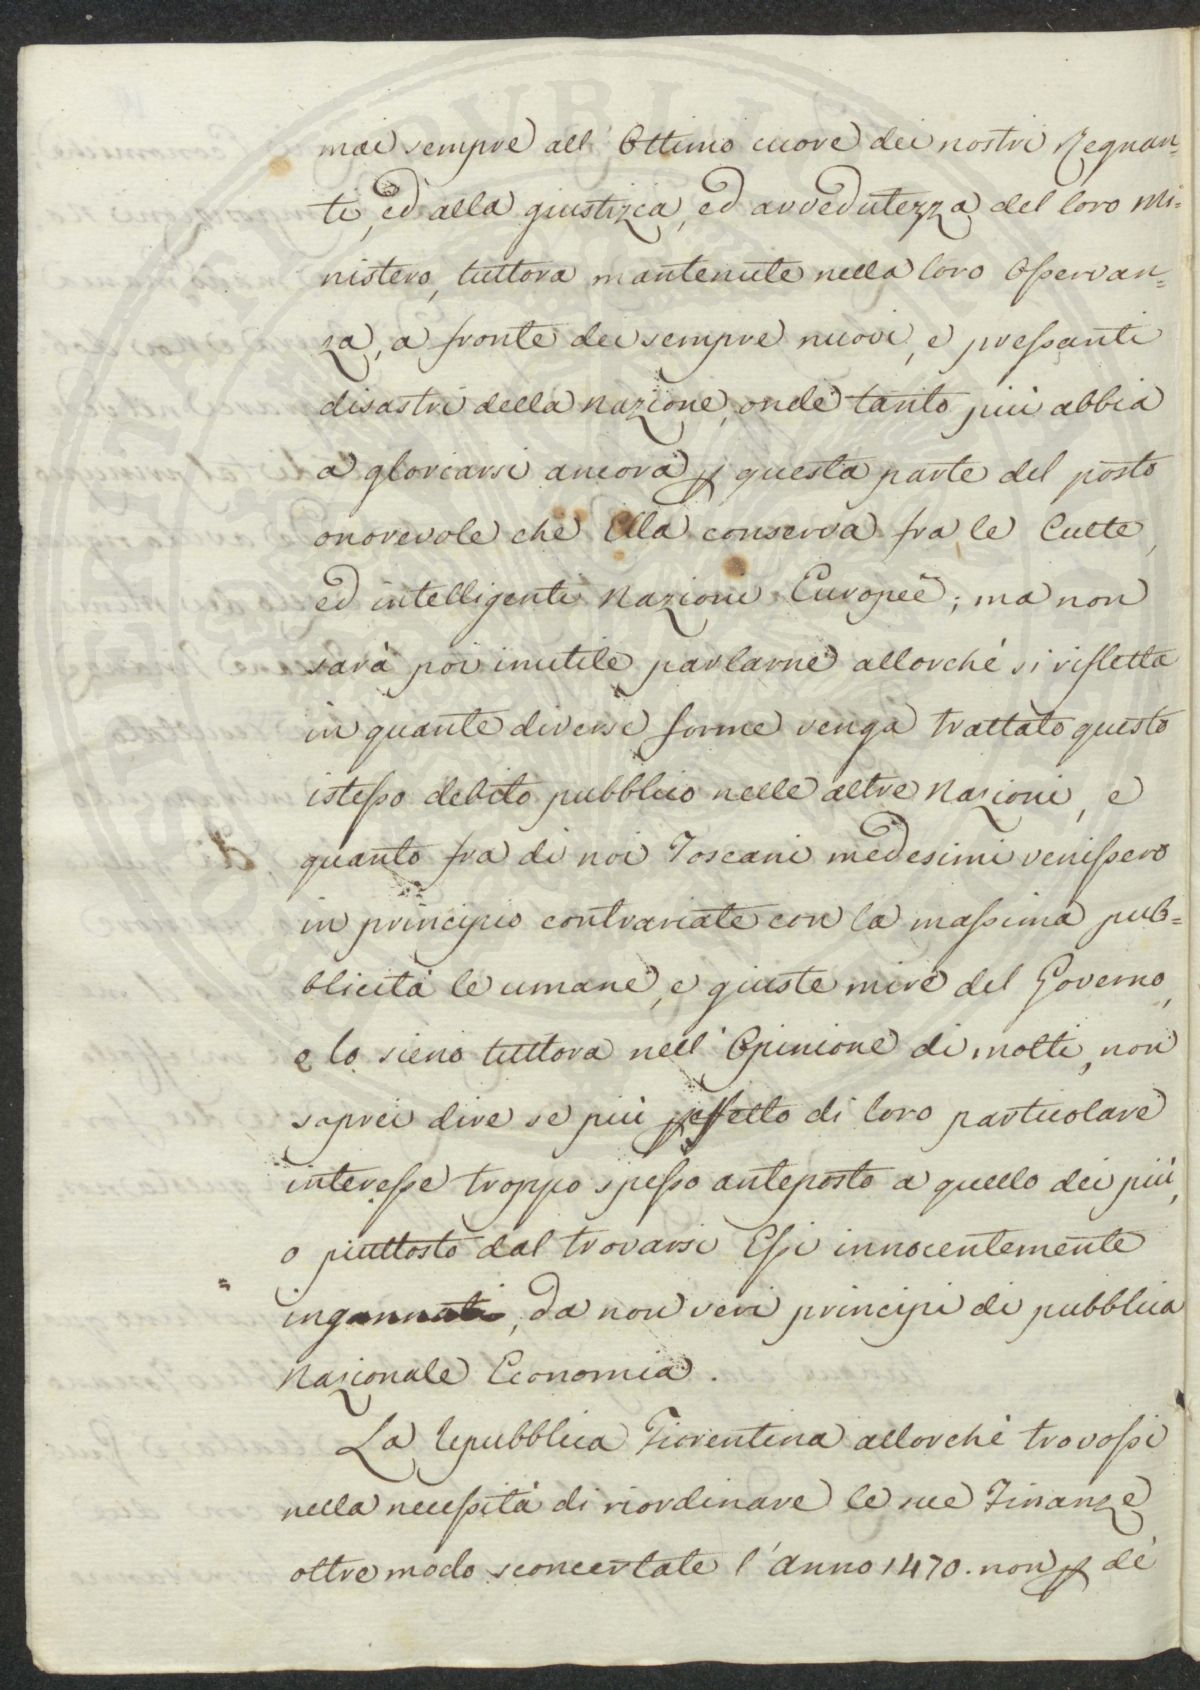 mai sempre all' Ottimo cuore dei nostri Regnan=
ti, ed alla giustizia, ed avvedutezza del loro Mi=
nistero, tuttora mantenute nella loro Osservan=
za, a fronte dei sempre nuovi, e pressanti
disastri della Nazione, onde tanto più abbia
a gloriarsi ancora p questa parte del posto
onorevole che Ella conserva fra le Culte,
ed intelligenti Nazioni Europee; ma non
sarà poi inutile parlarne allorché si rifletta
in quante diverse forme venga trattato questo
istesso debito pubblico nelle altre Nazioni, e
quanto fra di noi Toscani medesimi venissero
in principio contrariate con la massima pub=
blicità le umane, e giuste mire del Governo,
e lo sieno tuttora nell' Opinione di molti, non
saprei dire se più p effetto di loro particolare
interesse troppo spesso anteposto a quello dei più,
o piuttosto dal trovarsi Essi innocentemente
ingannati, da non veri principi di pubblica
Nazionale Economia.
La Repubblica Fiorentina allorché trovossi
nella necessità di riordinare le sue Finanze
oltre modo sconcertate l'anno 1470. non p de